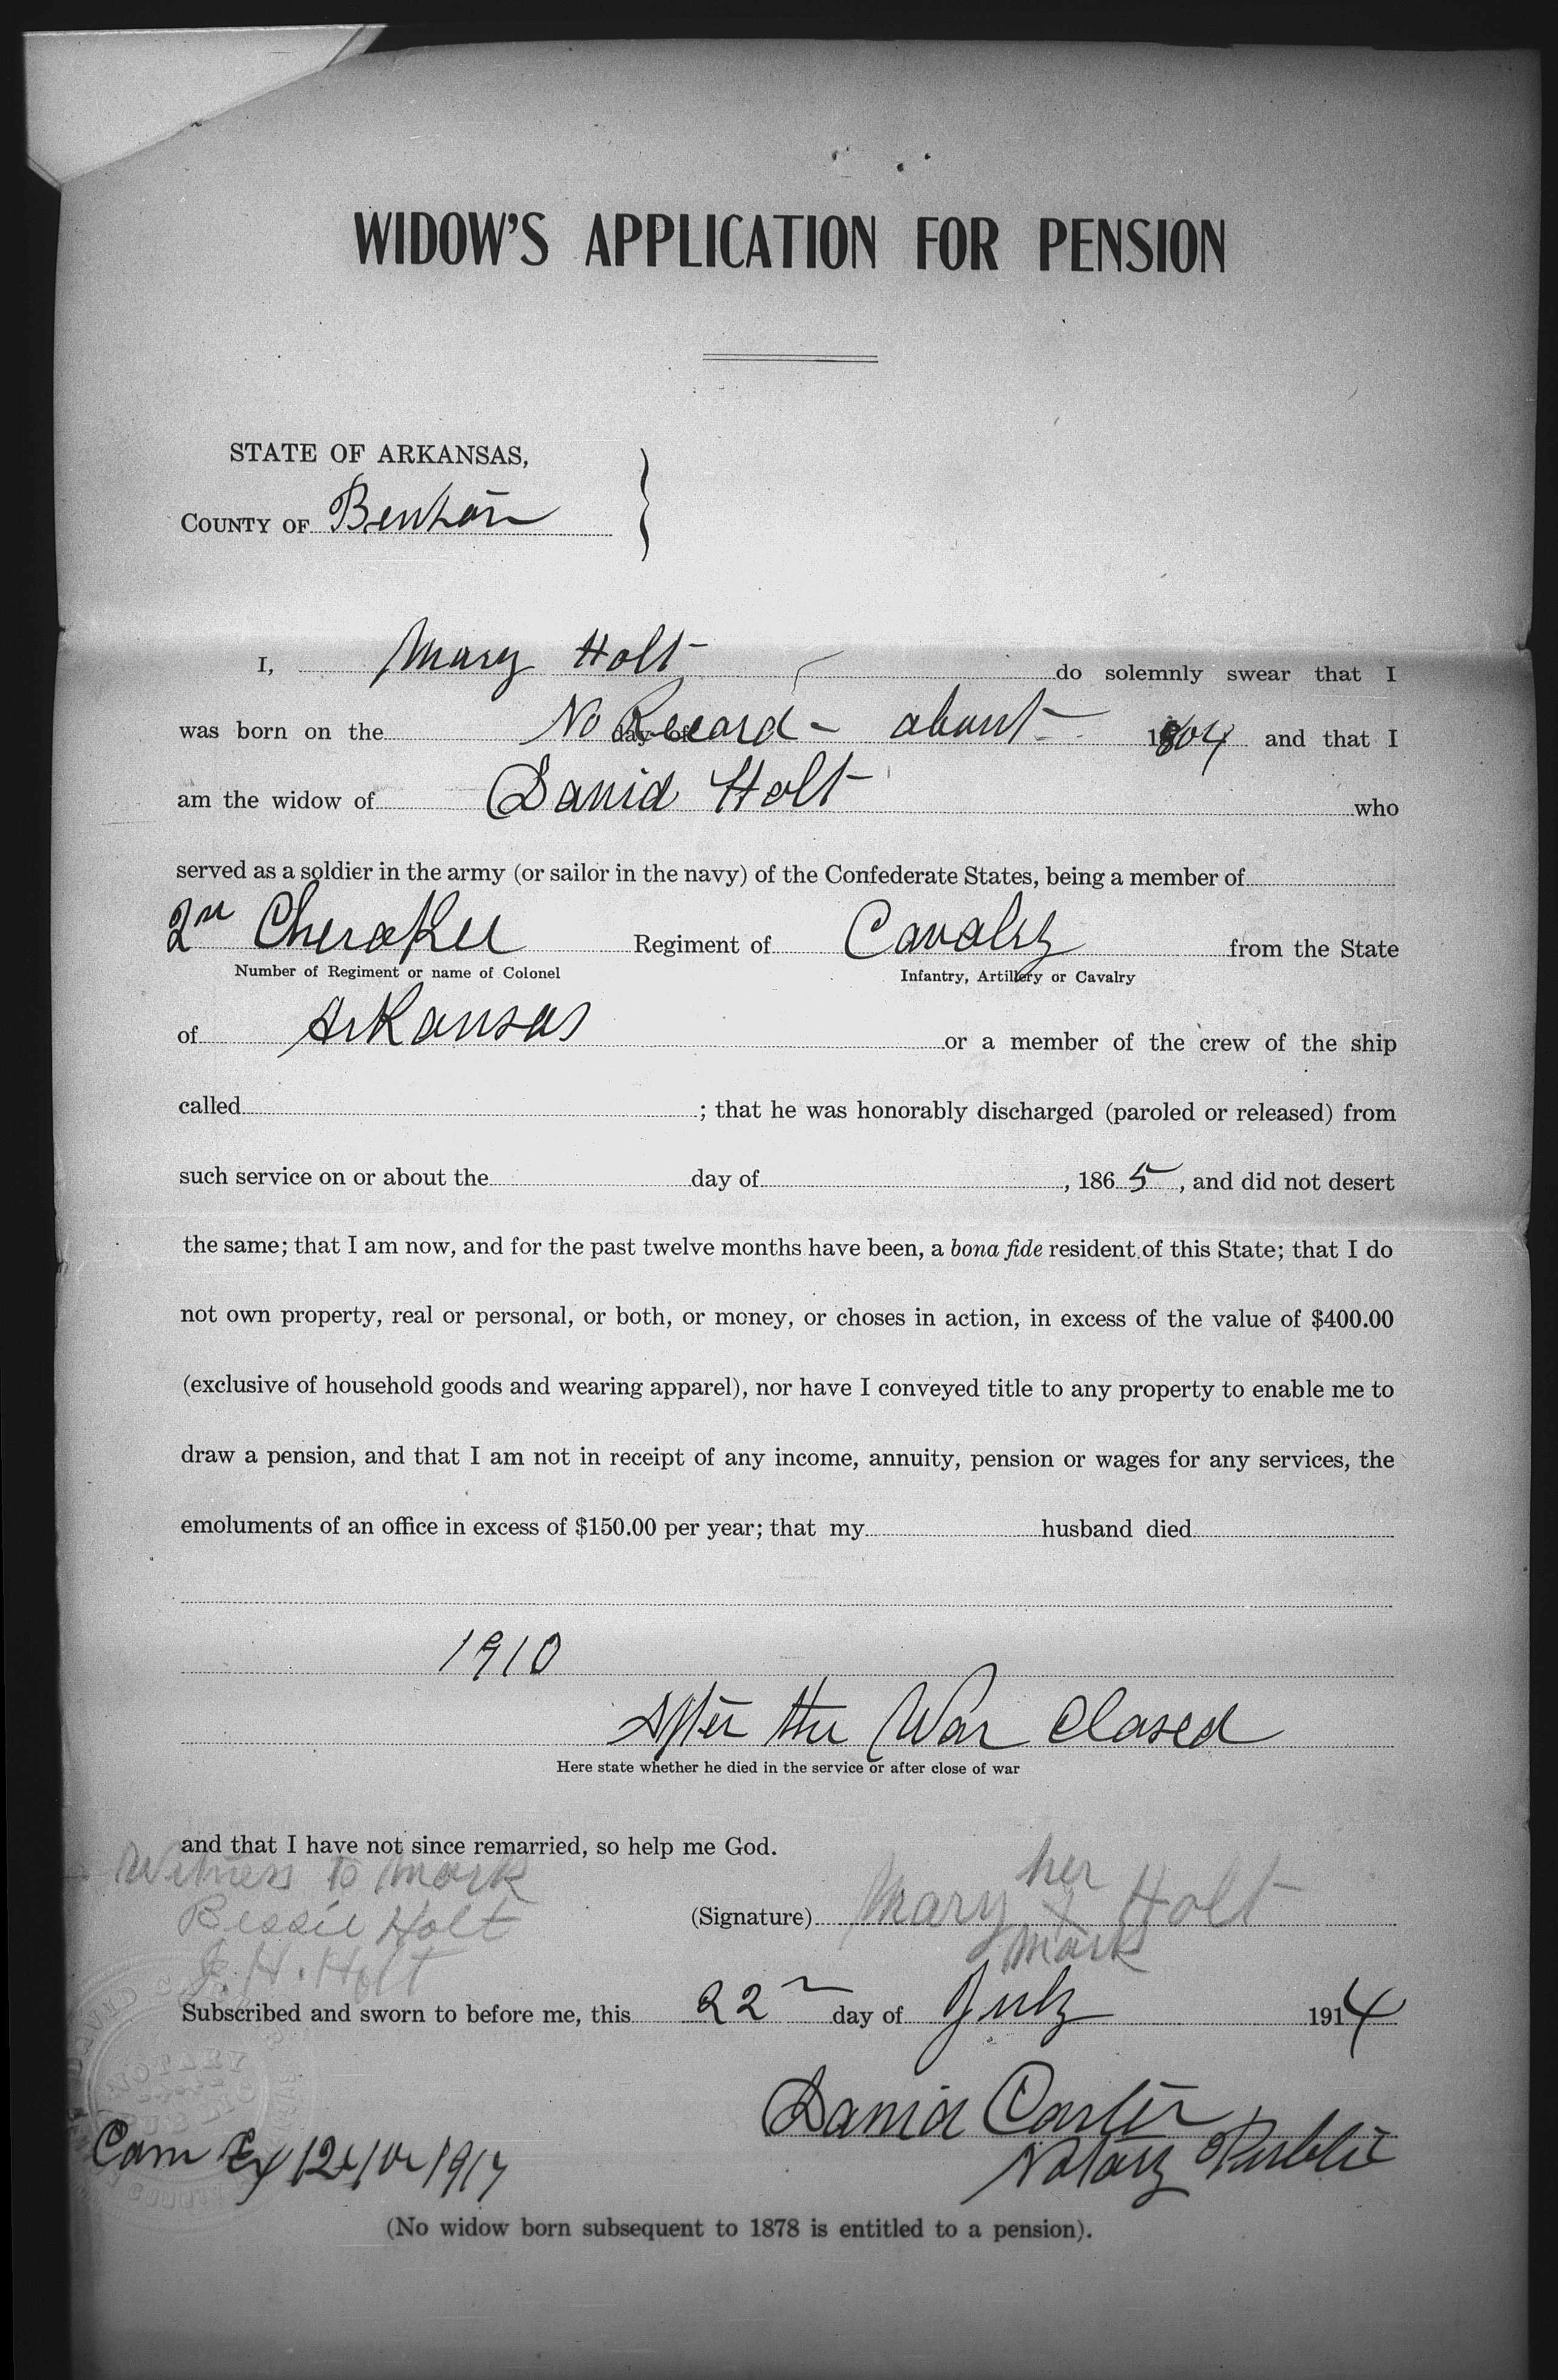 WIDOW'S APPLICATION FOR PENSION
STATE OF ARKANSAS,
COUNTY OF Benton
I, Mary Holt do solemnly swear that I
was born on the No Record - about 1804 and that I
am the widow of David Holt who
served as a soldier in the army (or sailor in the navy) of the Confederate States, being a member of
2nd Cherokee Regiment of Cavalry from the State
Number of Regiment or name of Colonel Infantry, Artillery or Cavalry
of Arkansas or a member of the crew of the ship
called ; that he was honorably discharged (paroled or released) from
such service on or about the day of , 1865, and did not desert
the same; that I am now, and for the past twelve months have been, a bona fide resident of this State; that I do
not own property, real or personal, or both, or money, or choses in action, in excess of the value of $400.00
(exclusive of household goods and wearing apparel), nor have I conveyed title to any property to enable me to
draw a pension, and that I am not in receipt of any income, annuity, pension or wages for any services, the
emoluments of an office in excess of $150.00 per year; that my husband died
1910
After the War Closed
Here state whether he died in the service or after close of war
and that I have not since remarried, so help me God.
Witness to mark
Bessie Holt
J. H. Holt
her
(Signature) Mary X Holt
mark
Subscribed and sworn to before me, this 22nd day of July 1914
David Carter
Notary Public
Com Ex 1917
NOTARY
PUBLIC
COUNTY
(No widow born subsequent to 1878 is entitled to a pension).